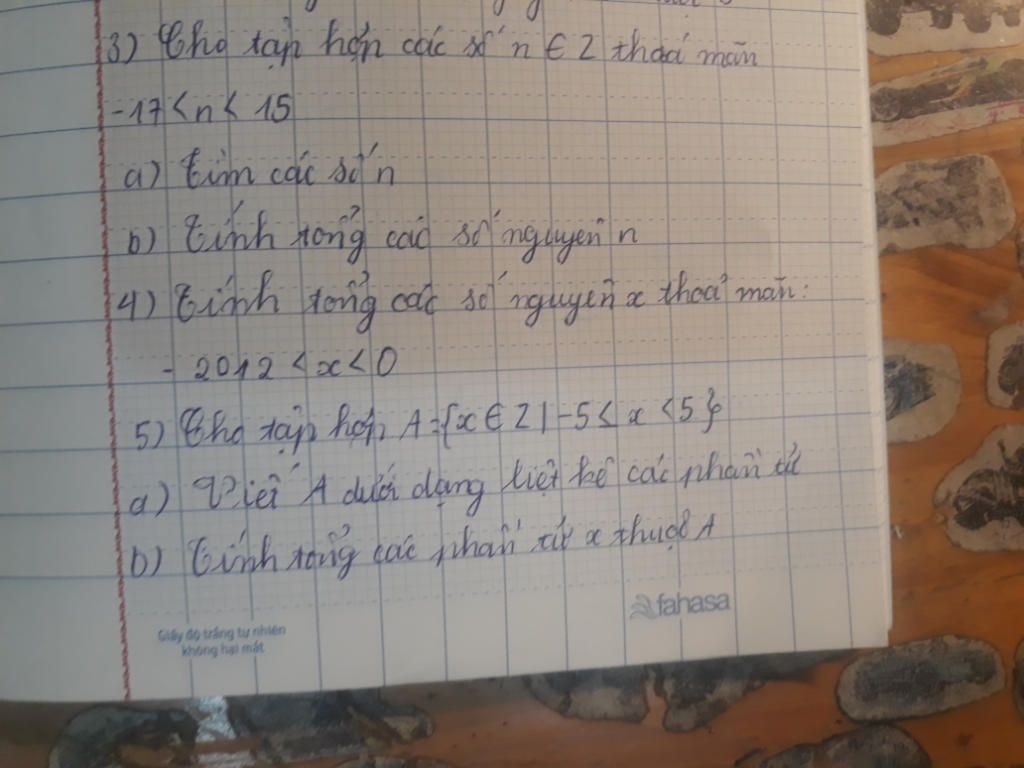 3) Cho tập hợp các số n ∈ Z thoả mãn
-17 < n < 15
a) tìm các số n
b) tính tổng các số nguyên n
4) tính tổng các số nguyên x thoả mãn:
- 2012 < x < 0
5) Cho tập hợp A = {x ∈ Z | -5 ≤ x < 5}
a) Viết A dưới dạng liệt kê các phần tử
b) tính tổng các phần tử x thuộc A
fahasa
Giấy độ trắng tự nhiên
không hại mắt